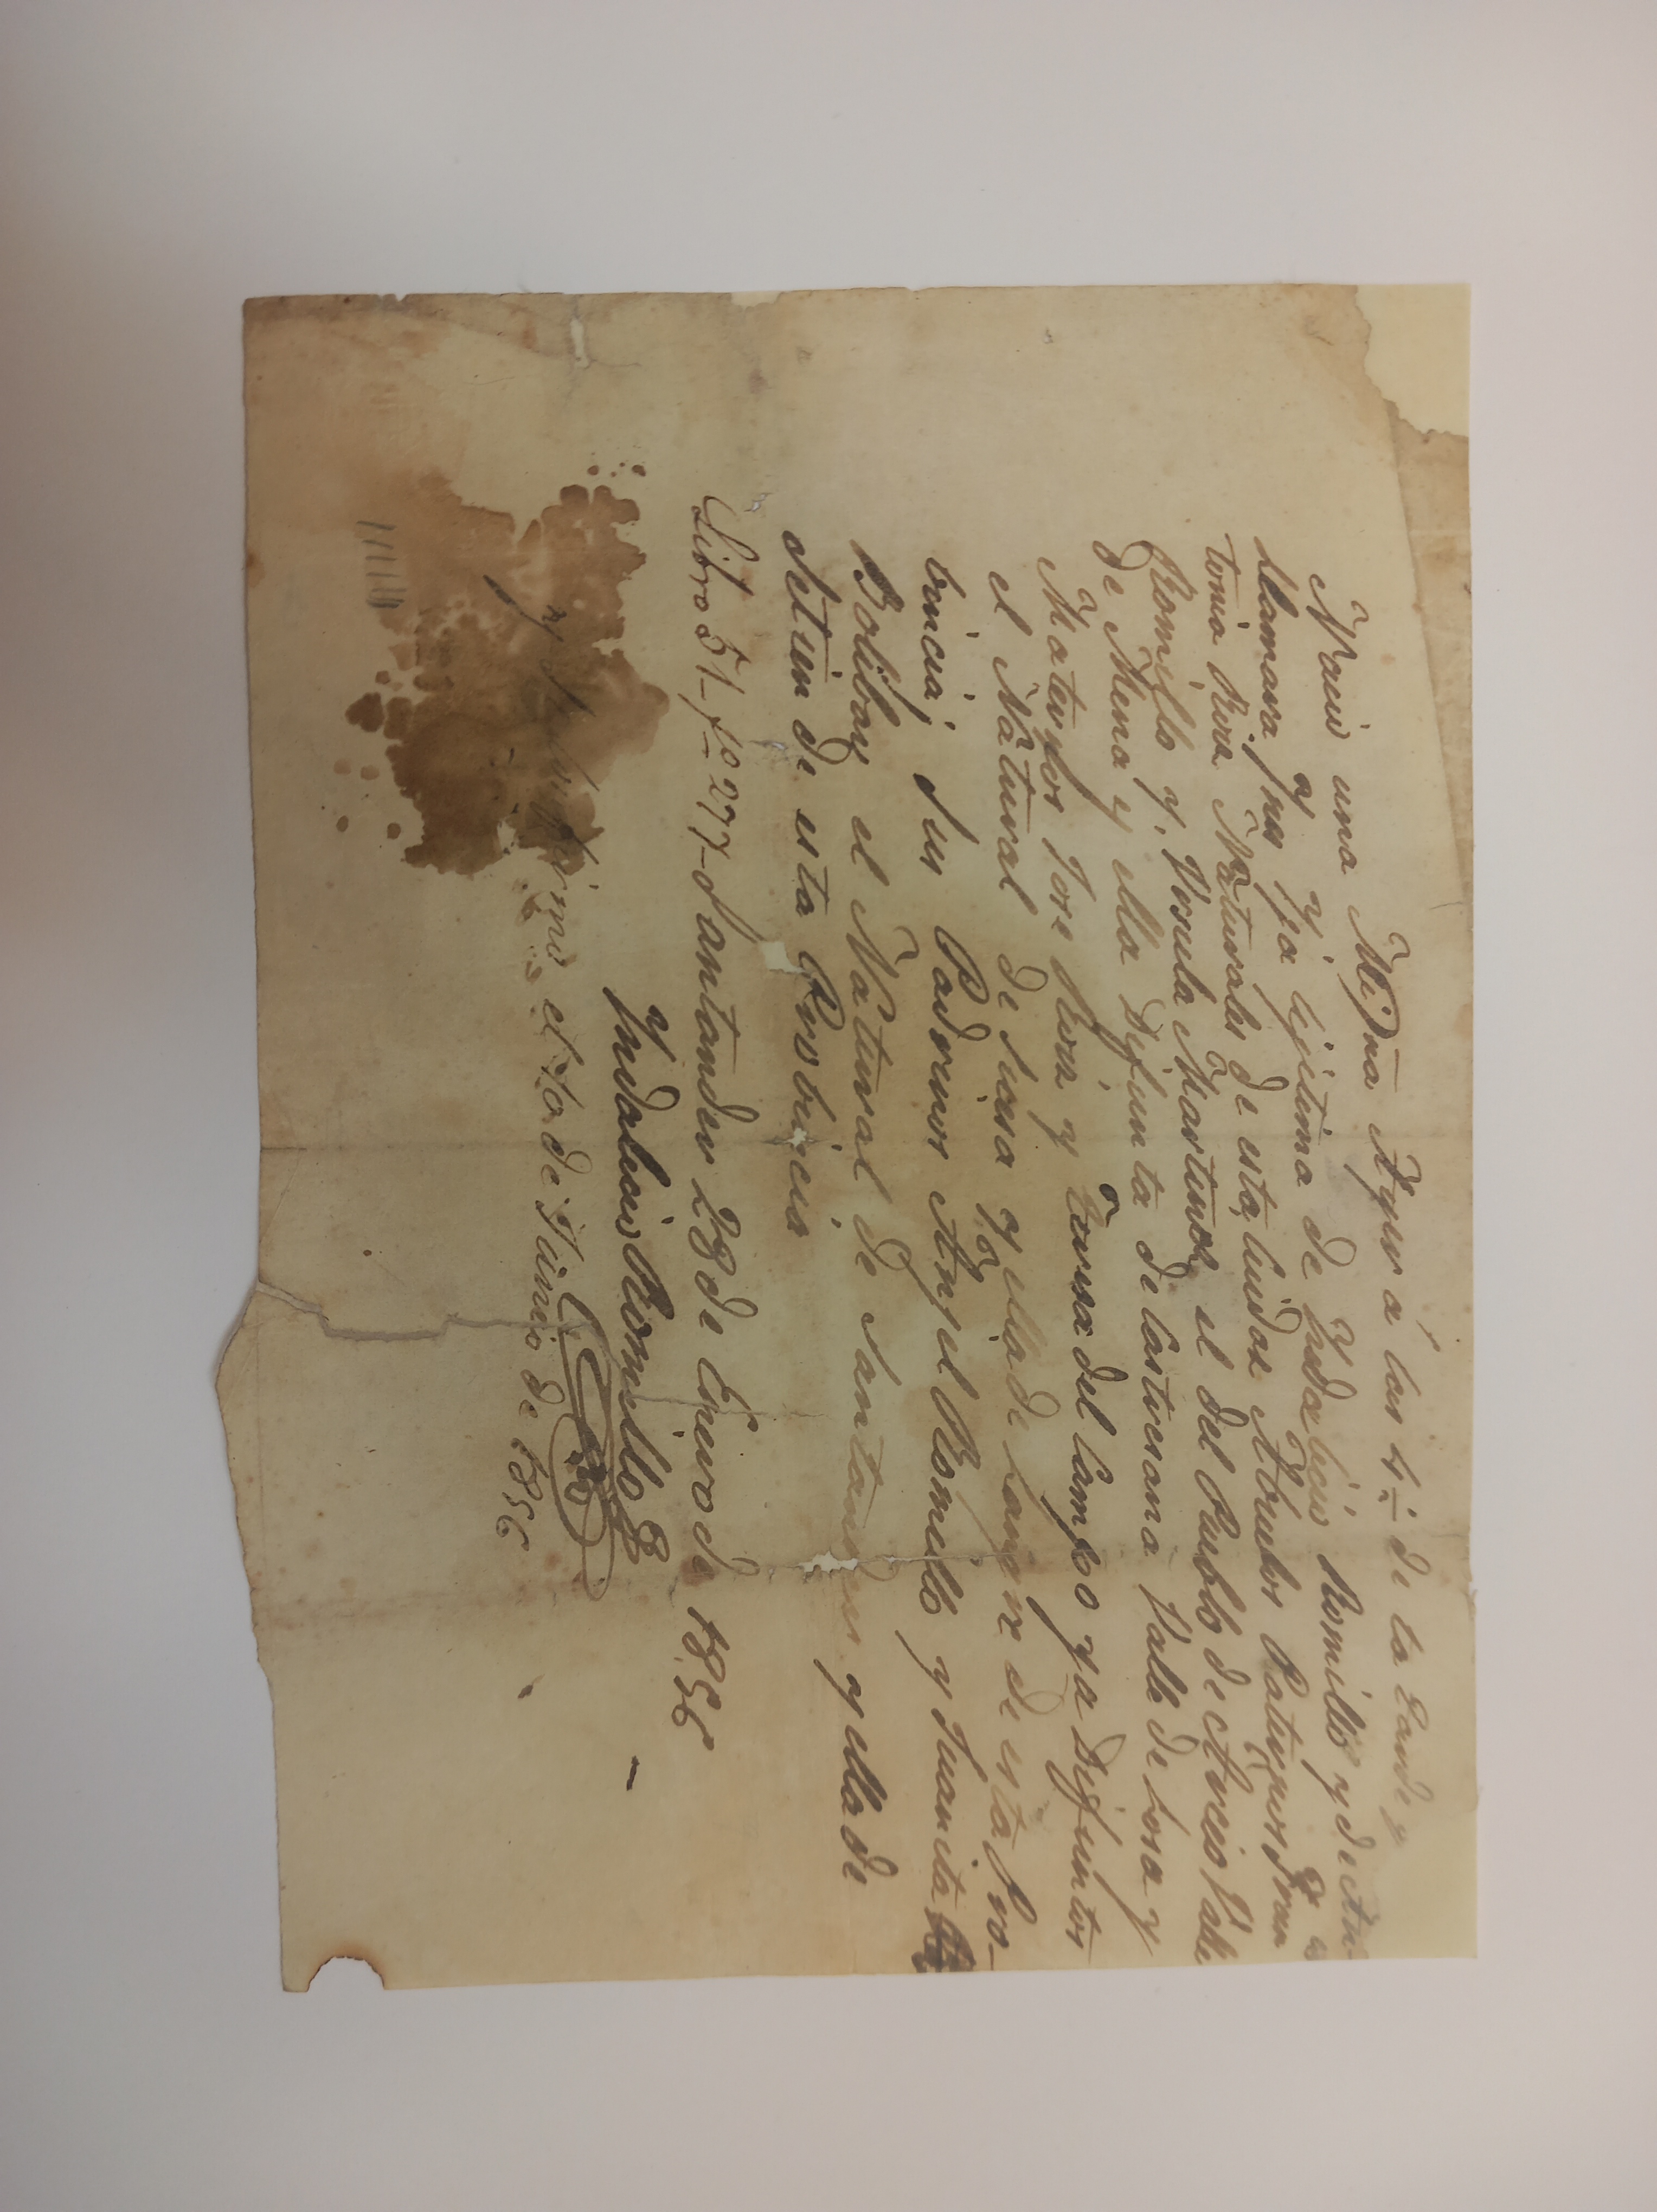 Nacio una Niña Ayer á las 4 de la Tarde y
Llamara yja lejitima de Yndalecio Romillo y de An
tonia Pura Naturales de esta Ciudad Abuelos Paternos Fran
Romillo y Vrsula Martinez el del Pueblo de Valle
de Mena y ella Difunta de Castresana Valle de Losa y
Maternos Jose y Teresa del Campo ya Difuntos
el Natural de y ella de de esta Pro-
bincia; Sus Padrinos Angel Romillo y Juanita
Bolibar el Natural de Santander y ella de
Setien de esta Probincia
Libro 51- fo 277- Santander 28 de Enero de 1856
Yndalecio Romillo
el to de Junio de 1856